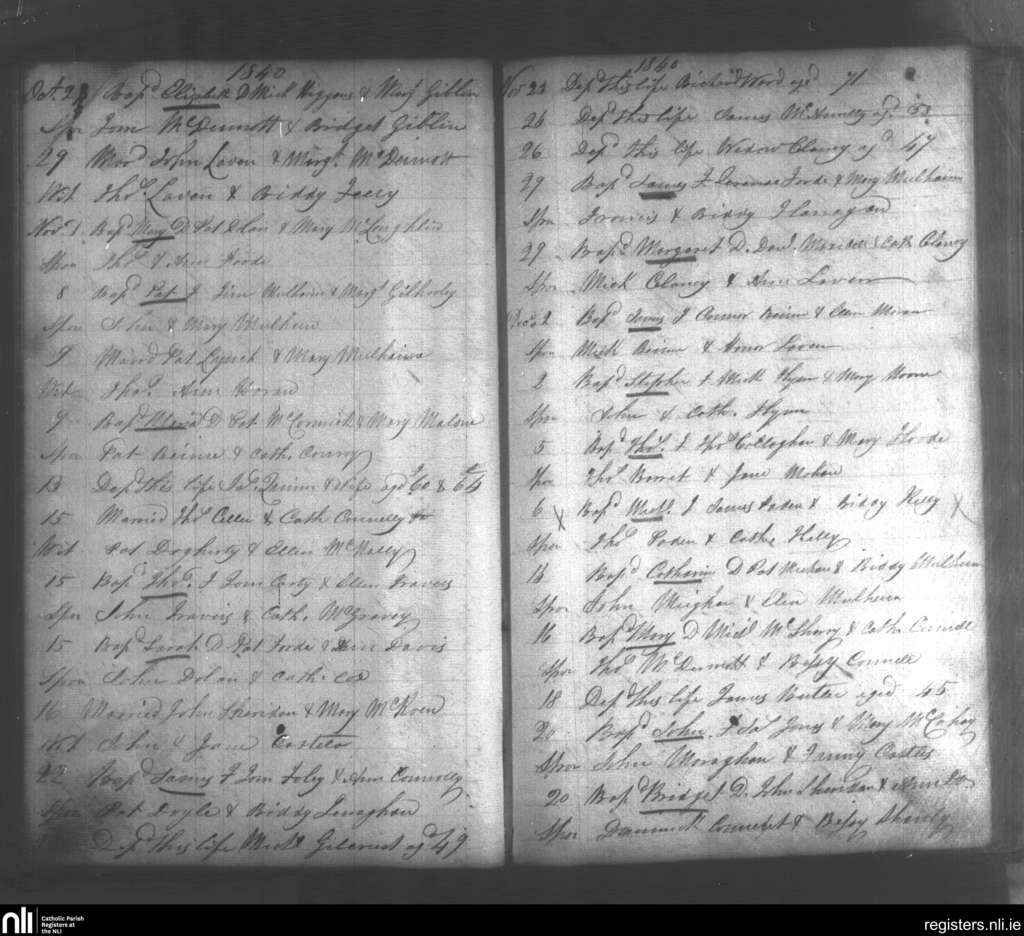 1840
Oct. 2 Bapd Elizabeth D Mich Higgins & Mary Giblin
Spor Tom McDermott & Bridget Giblin
29 Mard John Laven & Margt McDermott
Wit Thos Laven & Biddy
Novr 1 Bapd Mary D Pat Dolan & Mary McLoughlin
Spor Thos & Ann Forde
8 Bapd Pat J Jim Mulhern & Margt Gilhooly
Spor John & Mary Mulhern
9 Married Pat & Mary Mulhern
Wit Thos Ann Horan
9 Bapd D Pat McCormick & Mary Malone
Spor Pat Beirne & Cath. Conroy
13 Depd this life Jas Quinn & wife agd 60 & 64
15 Married Thos Cullen & Cath Connelly
Wit Pat Dogherty & Ellen McNally
15 Bapd Thos J Tom Carty & Ellen Travers
Spor John Travers & Cath. McGravey
15 Bapd Sarah D Pat Forde & Ann Davis
Spor John Dolan & Cath. Cox
16 Married John Sheridan & Mary McKeon
Wit John & Jane Costelo
22 Bapd James J Tom Foley & Ann Connolly
Spor Pat Doyle & Biddy Lenaghan
Depd this life Michl Gilcrist agd 49
1840
Nov 23 Depd this life Richard Ward agd 71
26 Depd this life James agd
26 Depd this life Widow Clancy agd 47
29 Bapd James J Forde & Mary Mulhern
Spor Francis & Biddy Flanagan
29 Bapd Margaret D. Danl & Cath Clancy
Spor Mick Clancy & Ann Laven
Decr 2 Bapd James J Connor Beirne & Ellen Moran
Spor Mick Beirne & Honor Laven
2 Bapd Stephen J Mick Flynn & Mary Moore
Spor John & Cath. Flynn
5 Bapd Thos J Thos Callaghan & Mary Forde
Spor Thos Barret & Jane Mohan
6 X Bapd Michl J James Paden & Biddy Kelly X
Spor Thos Paden & Cath. Kelly
13 Bapd Catharine D Pat Meehan & Biddy Mulhern
Spor John Meighan & Ellen Mulhern
16 Bapd Mary D Michl McSharry & Cath
Spor Thos McDermott & Betsy Connell
18 Depd this life James Butler aged 45
20 Bapd John J Jas Jones & Mary McCahey
Spor John Monaghan & Fanny Castles
20 Bapd Bridget D. John Sheridan & Ann
Spor & Betsy Shanly
nli Catholic Parish
Registers at
the NLI
registers.nli.ie